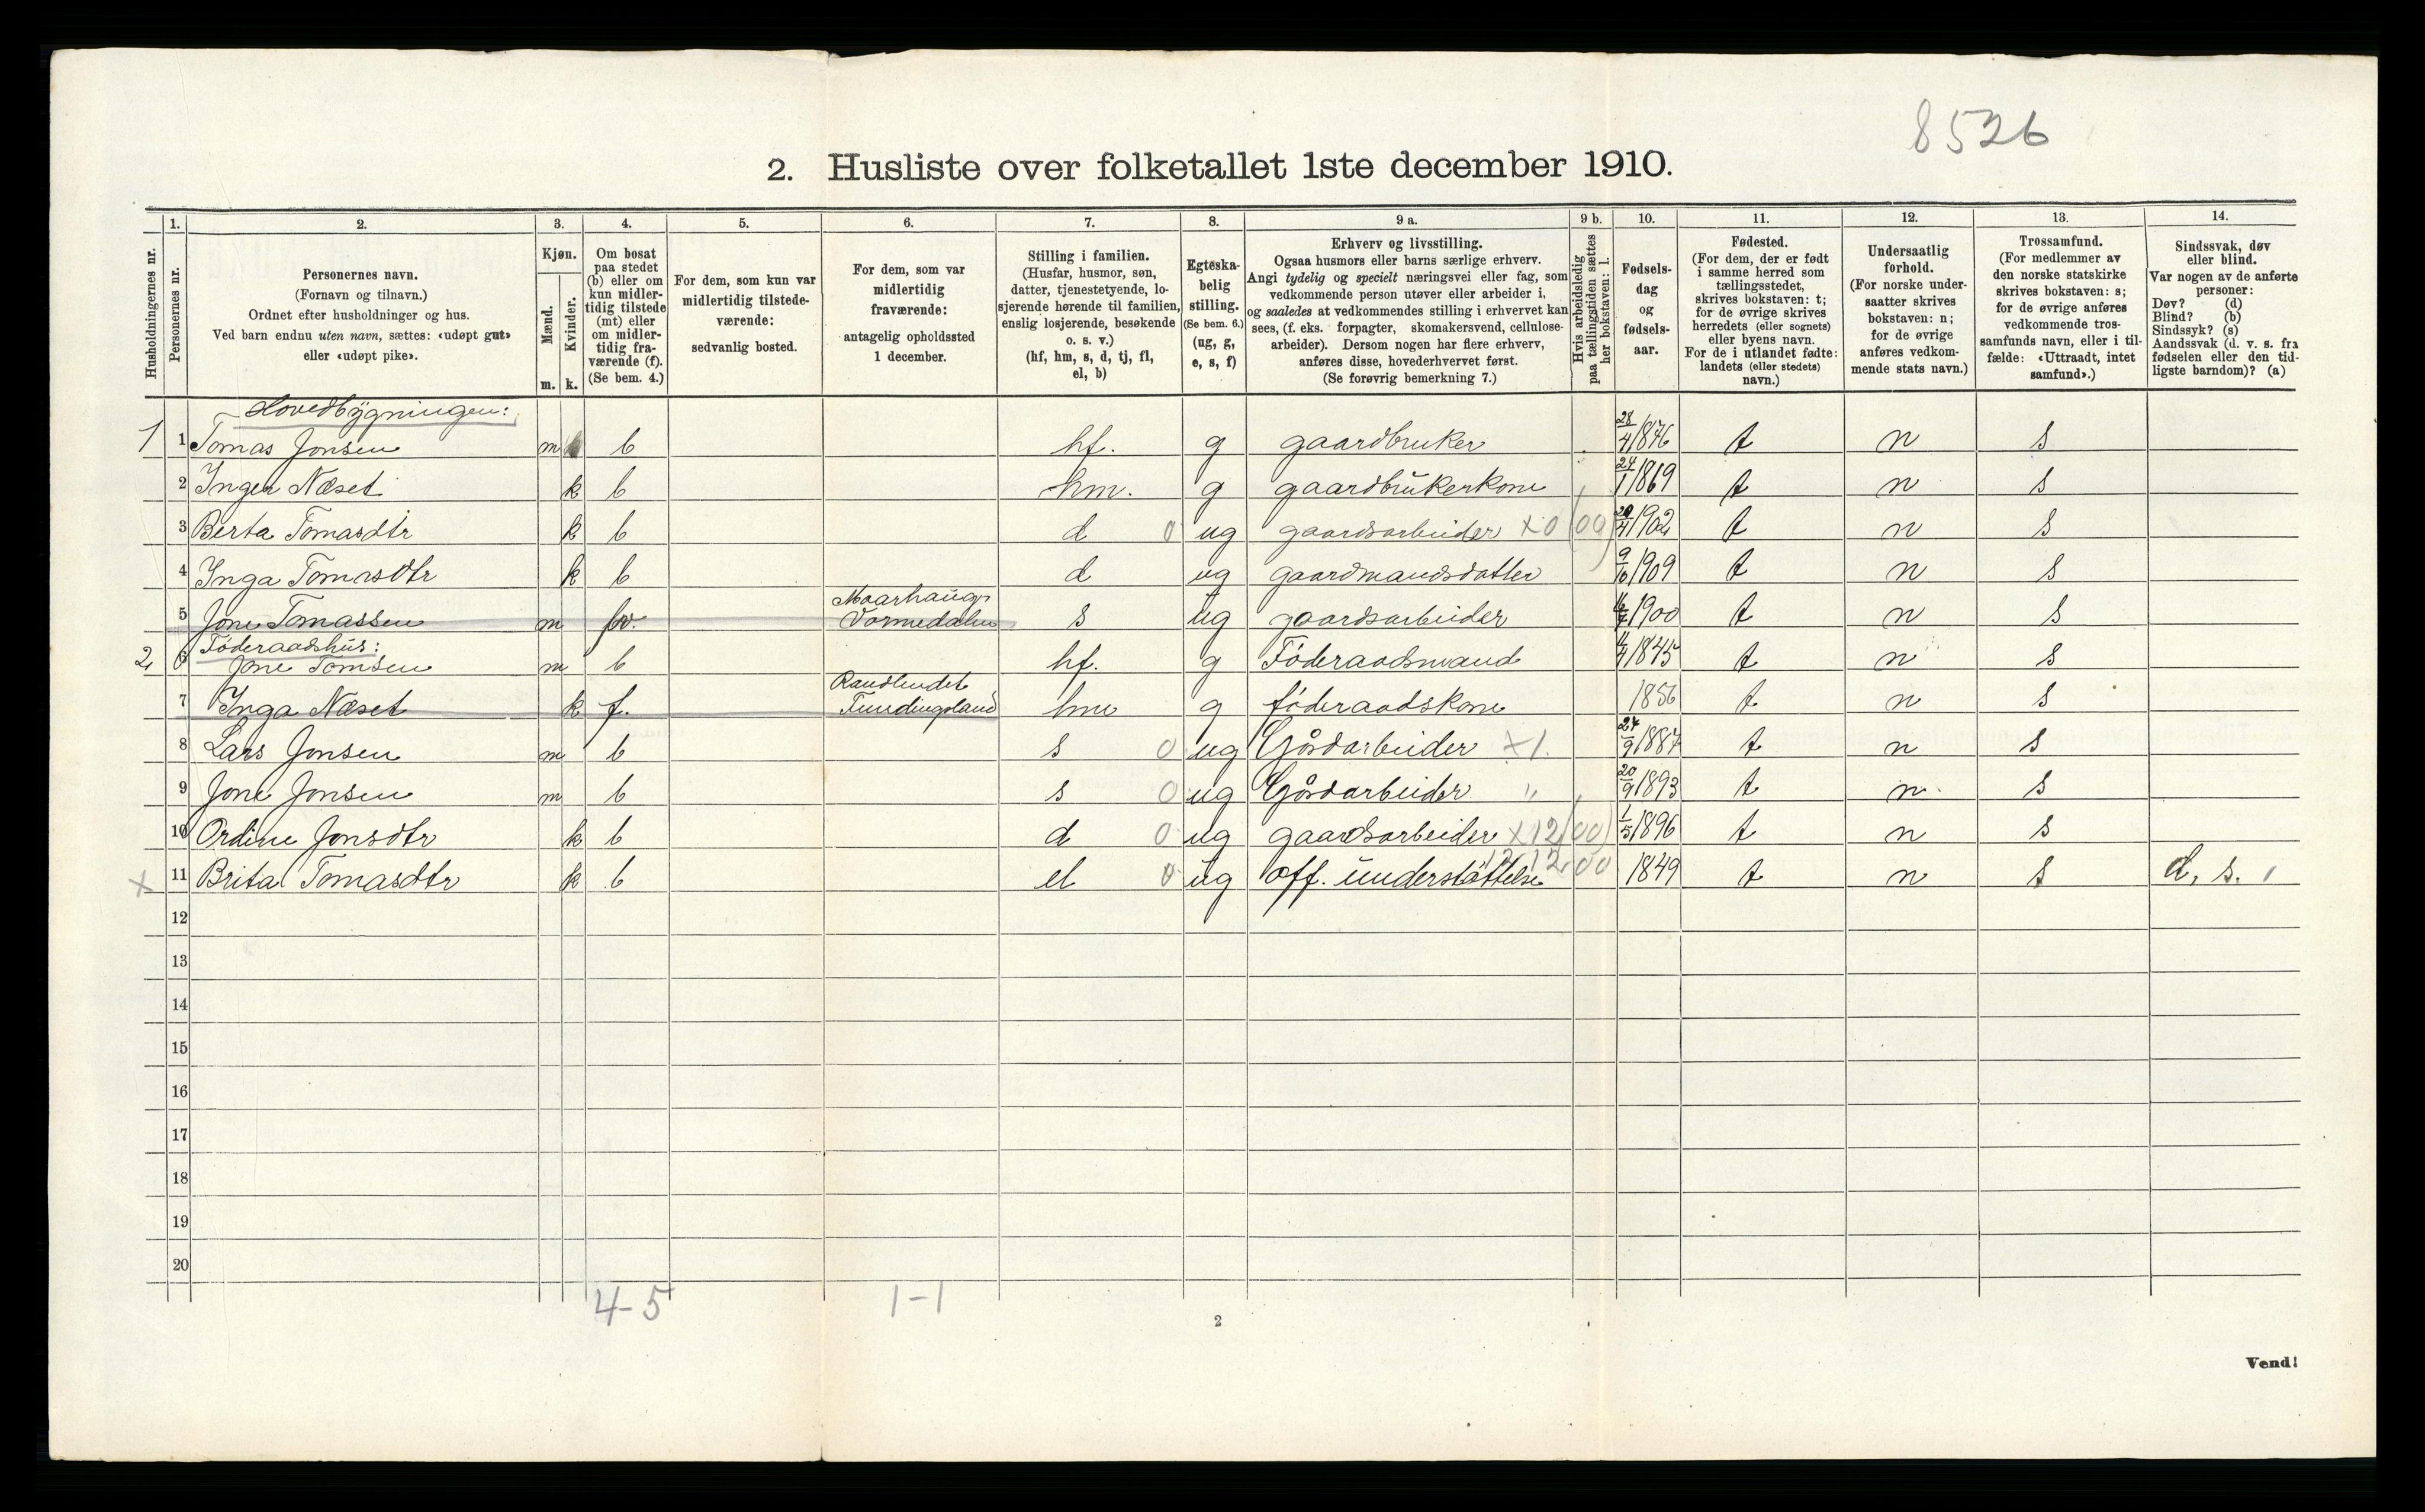 8526
2. Husliste over folketallet 1ste december 1910.
Husholdningernes nr.
1. Personernes nr.
2. Personernes navn.
(Fornavn og tilnavn.)
Ordnet efter husholdninger og hus.
Ved barn endnu uten navn, sættes: «udøpt gut»
eller «udøpt pike».
3. Kjøn.
Mænd. Kvinder.
m. k.
4. Om bosat
paa stedet
(b) eller om
kun midler-
tidig tilstede
(mt) eller
om midler-
tidig fra-
værende (f).
(Se bem. 4.)
5. For dem, som kun var
midlertidig tilstede-
værende:
sedvanlig bosted.
6. For dem, som var
midlertidig
fraværende:
antagelig opholdssted
1 december.
7. Stilling i familien.
(Husfar, husmor, søn,
datter, tjenestetyende, lo-
sjerende hørende til familien,
enslig losjerende, besøkende
o. s. v.)
(hf, hm, s, d, tj, fl,
el, b)
8. Egteska-
belig
stilling.
(Se bem. 6.)
(ug, g,
e, s, f)
9 a. Erhverv og livsstilling.
Ogsaa husmors eller barns særlige erhverv.
Angi tydelig og specielt næringsvei eller fag, som
vedkommende person utøver eller arbeider i,
og saaledes at vedkommendes stilling i erhvervet kan
sees, (f. eks. forpagter, skomakersvend, cellulose-
arbeider). Dersom nogen har flere erhverv,
anføres disse, hovederhvervet først.
(Se forøvrig bemerkning 7.)
9 b. Hvis arbeidsledig
paa tællingstiden sættes
her bokstaven: l.
10. Fødsels-
dag
og
fødsels-
aar.
11. Fødested.
(For dem, der er født
i samme herred som
tællingsstedet,
skrives bokstaven: t;
for de øvrige skrives
herredets (eller sognets)
eller byens navn.
For de i utlandet fødte:
landets (eller stedets)
navn.)
12. Undersaatlig
forhold.
(For norske under-
saatter skrives
bokstaven: n;
for de øvrige
anføres vedkom-
mende stats navn.)
13. Trossamfund.
(For medlemmer av
den norske statskirke
skrives bokstaven: s;
for de øvrige anføres
vedkommende tros-
samfunds navn, eller i til-
fælde: «Uttraadt, intet
samfund».)
14. Sindssvak, døv
eller blind.
Var nogen av de anførte
personer:
Døv? (d)
Blind? (b)
Sindssyk? (s)
Aandssvak (d. v. s. fra
fødselen eller den tid-
ligste barndom)? (a)
Hovedbygningen:
1 1 Tomas Jonsen m b hf. g gaardbruker 28/4 1876 t n s
2 Inger Næset k b hm. g gaardbrukerkone 24/1 1869 t n s
3 Berta Tomasdtr k b d 0 ug gaardsarbeider x0 (00) 1902 t n s
4 Inga Tomasdtr k b d ug gaardmandsdatter 9/10 1909 t n s
5 Jone Tomassen m Vormedalen s ug gaardsarbeider 1900 t n s
Föderaadshus:
2 6 Jone Tomsen m b hf. g Föderaadsmand 1845 t n s
7 Inga Næset k f. Tundingsland hm g föderaadskone 1856 t n s
8 Lars Jonsen m b s 0 ug Gårdarbeider x1. 24/9 1887 t n s
9 Jone Jonsen m b s 0 ug Gårdarbeider " 20/9 1893 t n s
10 Ordine Jonsdtr k b d 0 ug gaardsarbeider x12 (00) 1/5 1896 t n s
x 11 Brita Tomasdtr k b el 0 ug off. understöttelse 12.12.00 1849 t n s d, s.
12
13
14
15
16
17
18
19
20
4-5 1-1
2
Vend!